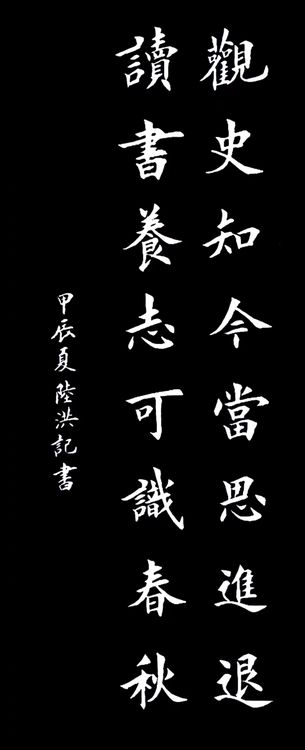 觀史知今當思進退
讀書養志可識春秋
甲辰夏陸洪記書